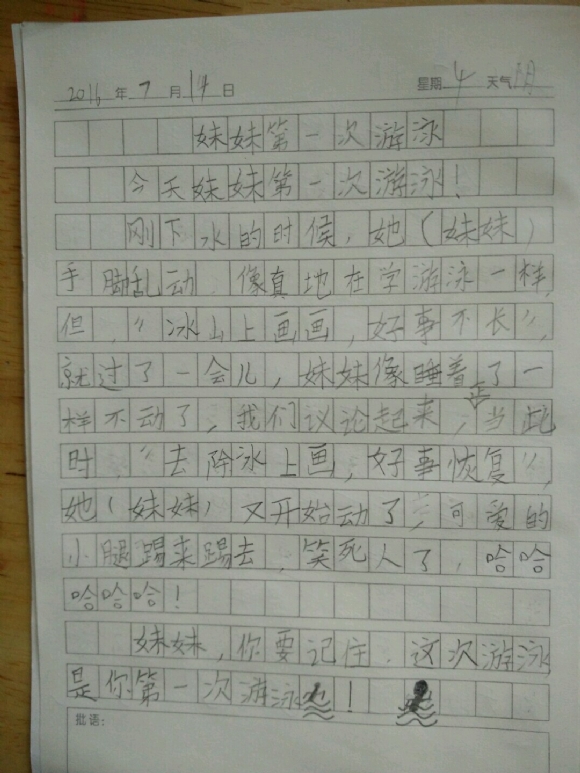 2016年7月14日 星期4天气阴
妹妹第一次游泳
今天妹妹第一次游泳!
刚下水的时候,她(妹妹)
手脚乱动,像真地在学游泳一样,
但,“冰山上画画,好事不长”,
就过了一会儿,妹妹像睡着了一
样不动了,我们议论起来,正当此
时,“去除冰上画,好事恢复”,
她(妹妹)又开始动了,可爱的
小腿踢来踢去,笑死人了,哈哈
哈哈哈!
妹妹,你要记住,这次游泳
是你第一次游泳!
批语: